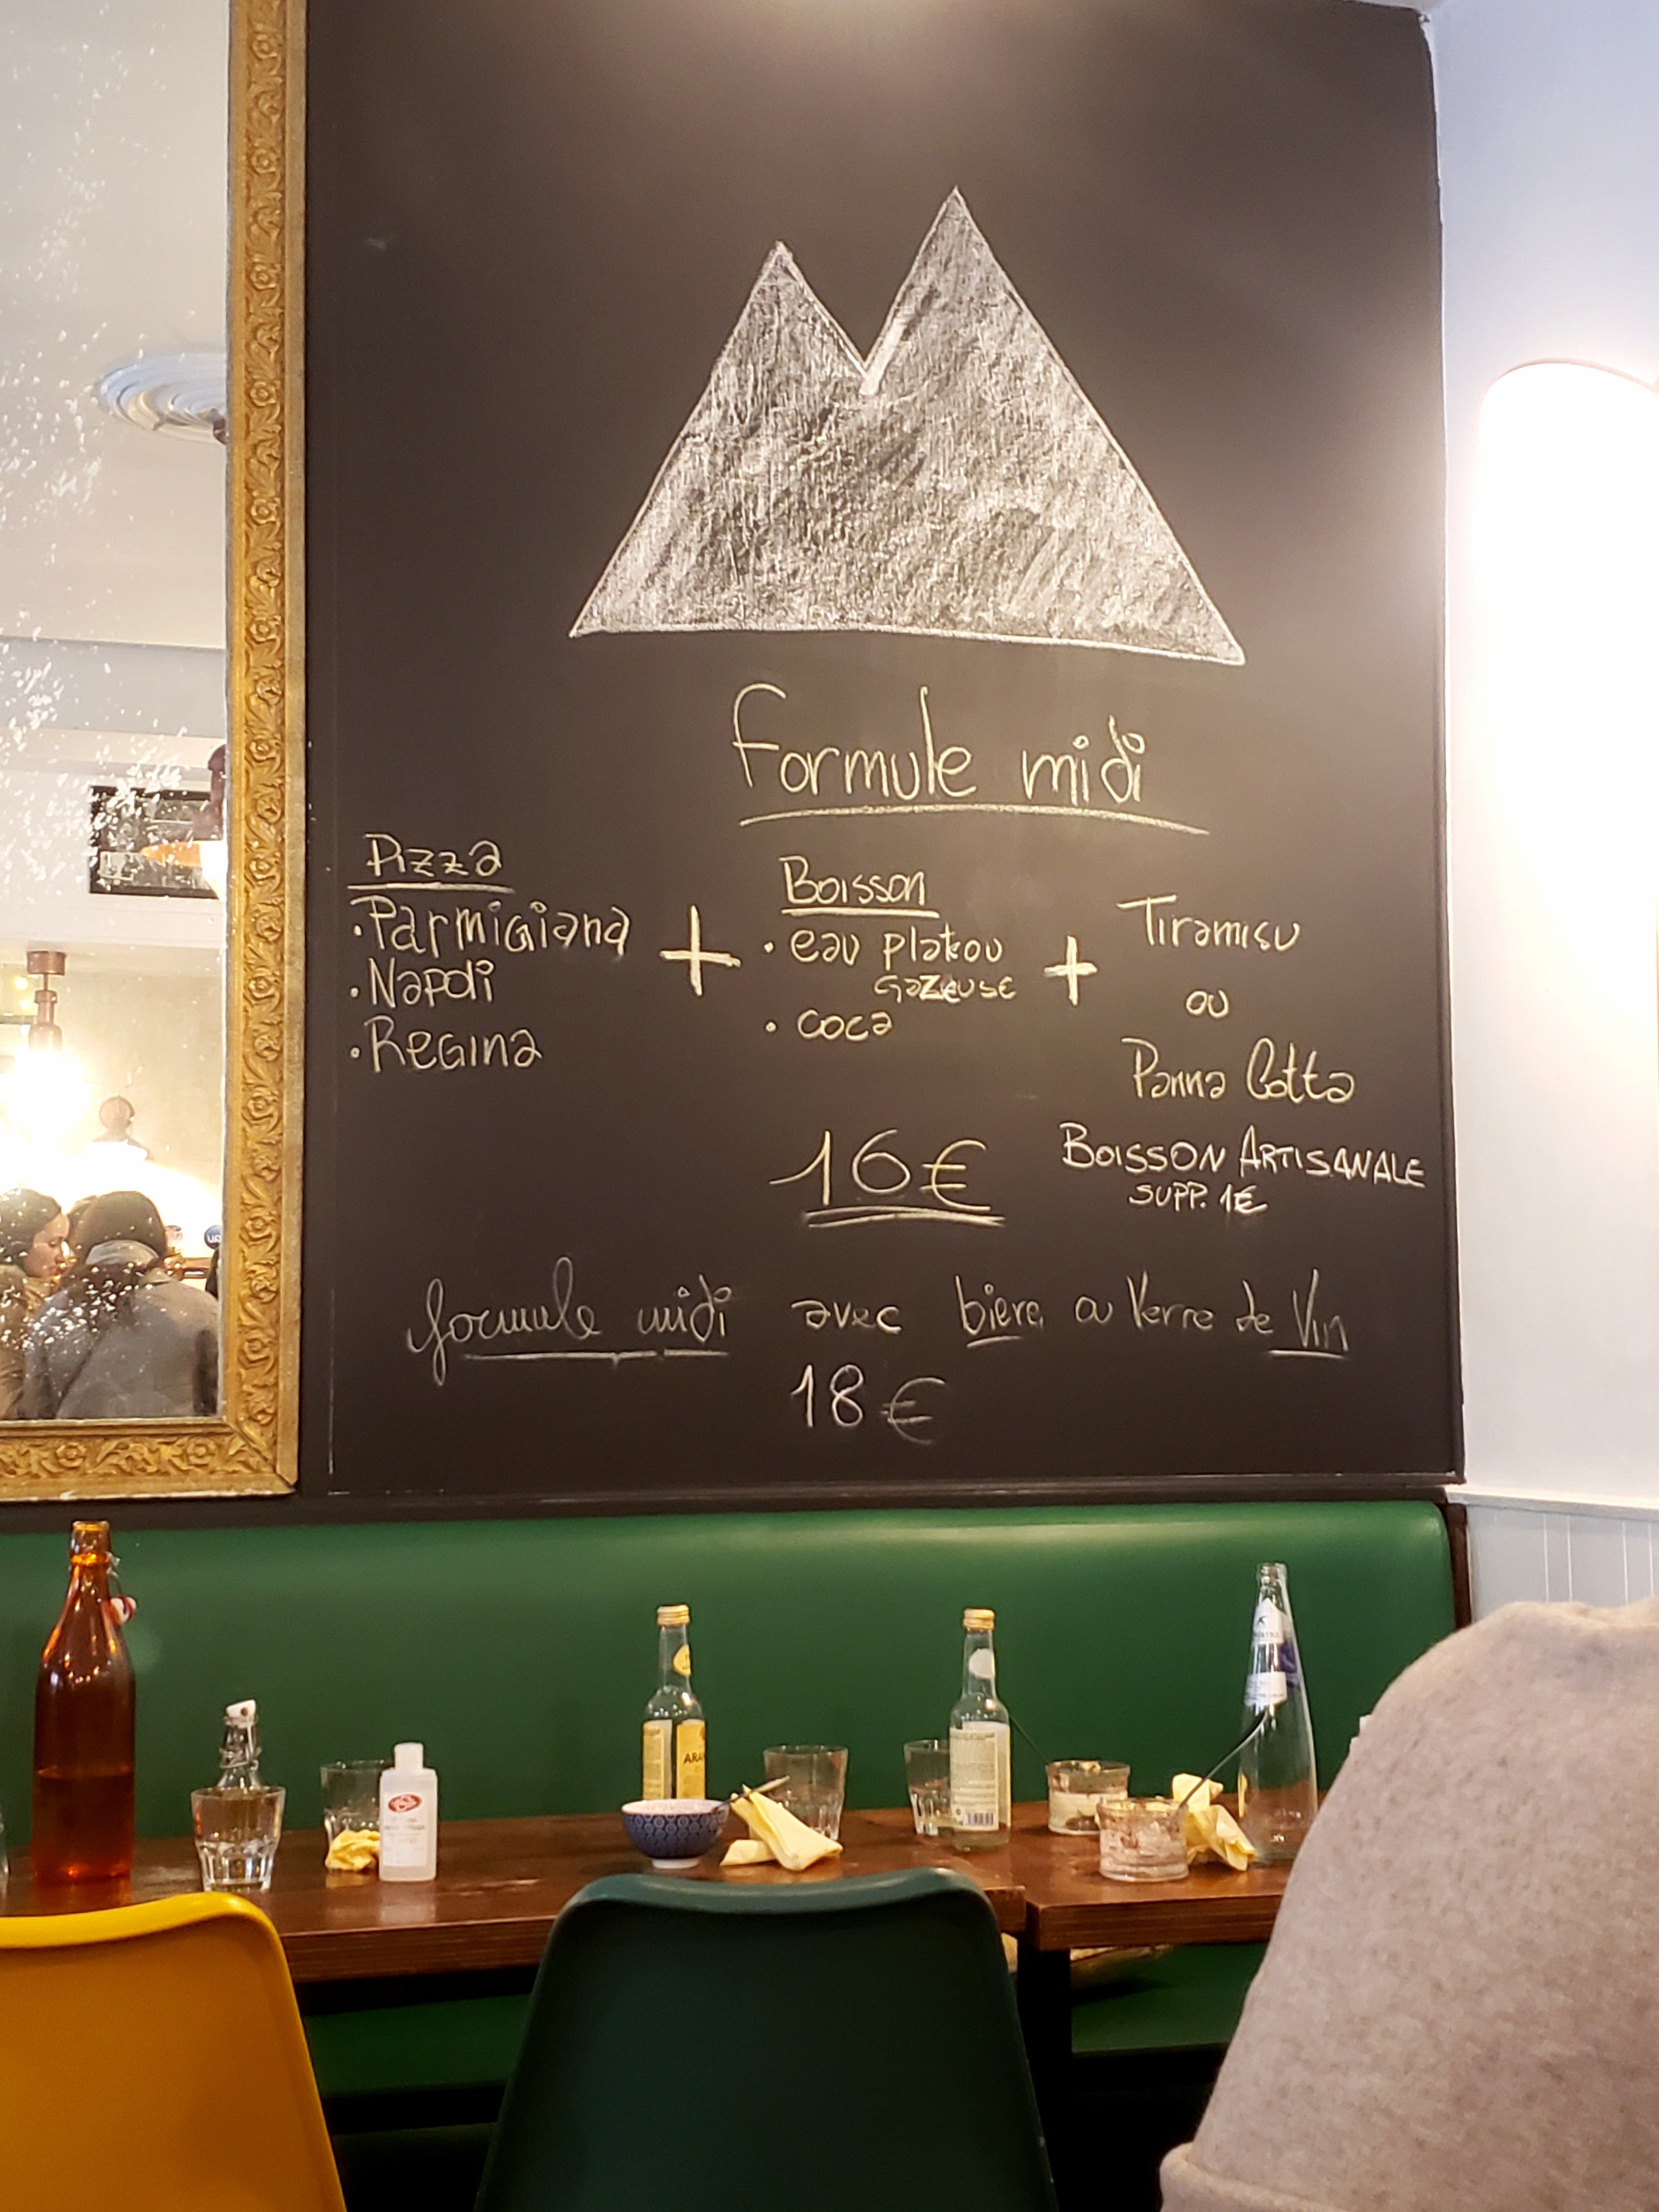 Formule midi
Pizza
· Parmigiana
· Napoli
· Regina
+
Boisson
· eau plate ou
gazeuse
· coca
+
Tiramisu
ou
Panna Cotta
16€
BOISSON ARTISANALE
SUPP. 1€
formule midi avec bière ou Verre de Vin
18€